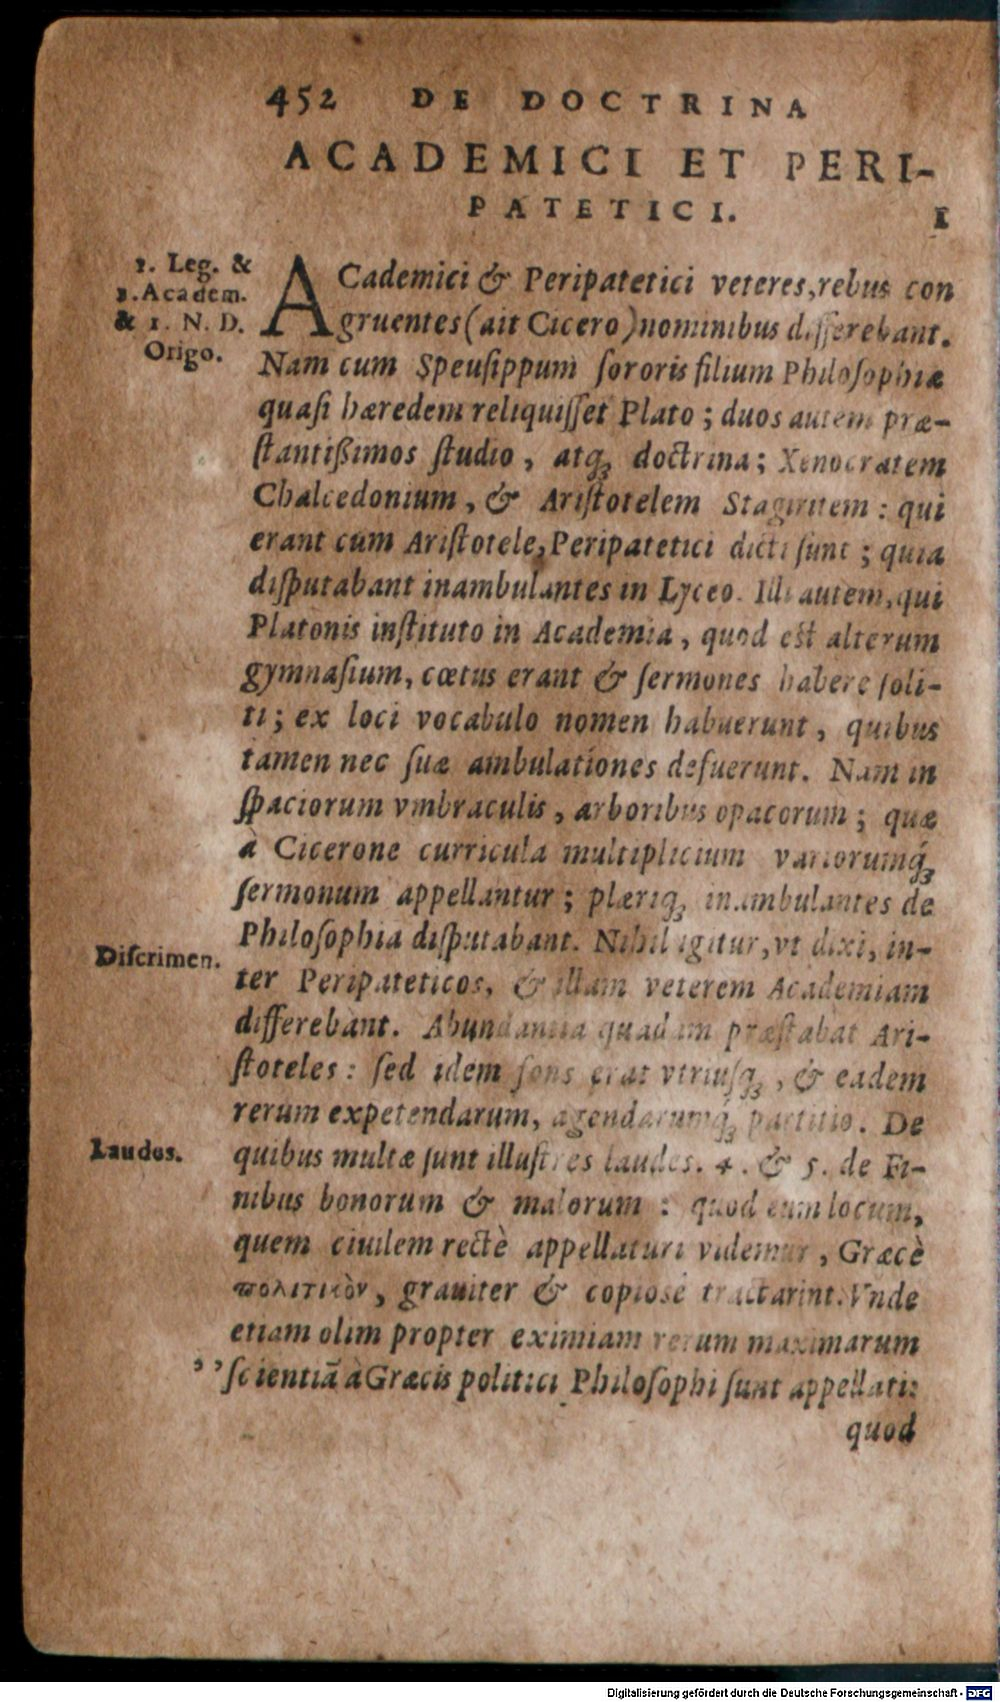 452 DE DOCTRINA
ACADEMICI ET PERI-
PATETICI. I
1. Leg. &
1. Academ.
& 1. N. D.
Origo.
ACademici & Peripatetici veteres, rebus con
gruentes (ait Cicero) nominibus differebant.
Nam cum Speusippum sororis filium Philosophiæ
quasi hæredem reliquisset Plato; duos autem præ-
stantißimos studio, atq; doctrina; Xenocratem
Chalcedonium, & Aristotelem Stagiritem: qui
erant cum Aristotele, Peripatetici dicti sunt; quia
disputabant inambulantes in Lyceo. Illi autem, qui
Platonis instituto in Academia, quod est alterum
gymnasium, cœtus erant & sermones habere soli-
ti; ex loci vocabulo nomen habuerunt, quibus
tamen nec suæ ambulationes defuerunt. Nam in
spaciorum vmbraculis, arboribus opacorum; quæ
à Cicerone curricula multiplicium variorumq́;
sermonum appellantur; pleriq; inambulantes de
Philosophia disputabant. Nihil igitur, vt dixi, in-
Discrimen.
ter Peripateticos, & illam veterem Academiam
differebant. Abundantia quadam præstabat Ari-
stoteles: sed idem fons erat vtriusq;, & eadem
rerum expetendarum, agendarumq́; partitio. De
Laudes.
quibus multæ sunt illustres laudes. 4. & 5. de Fi-
nibus bonorum & malorum: quod eum locum,
quem ciuilem rectè appellaturi videmur, Græcè
πολιτικὸν, grauiter & copiosè tractarint. Vnde
etiam olim propter eximiam rerum maximarum
,, scientiã à Græcis politici Philosophi sunt appellati:
quod
Digitalisierung gefördert durch die Deutsche Forschungsgemeinschaft - DFG